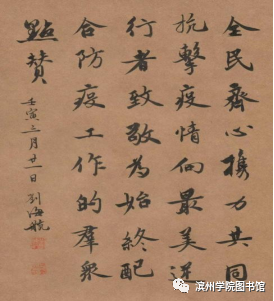 全民齊心携力共同
抗擊疫情向最美逆
行者致敬为始終配
合防疫工作的羣衆
點赞
壬寅三月廿一日刘海
滨州学院图书馆